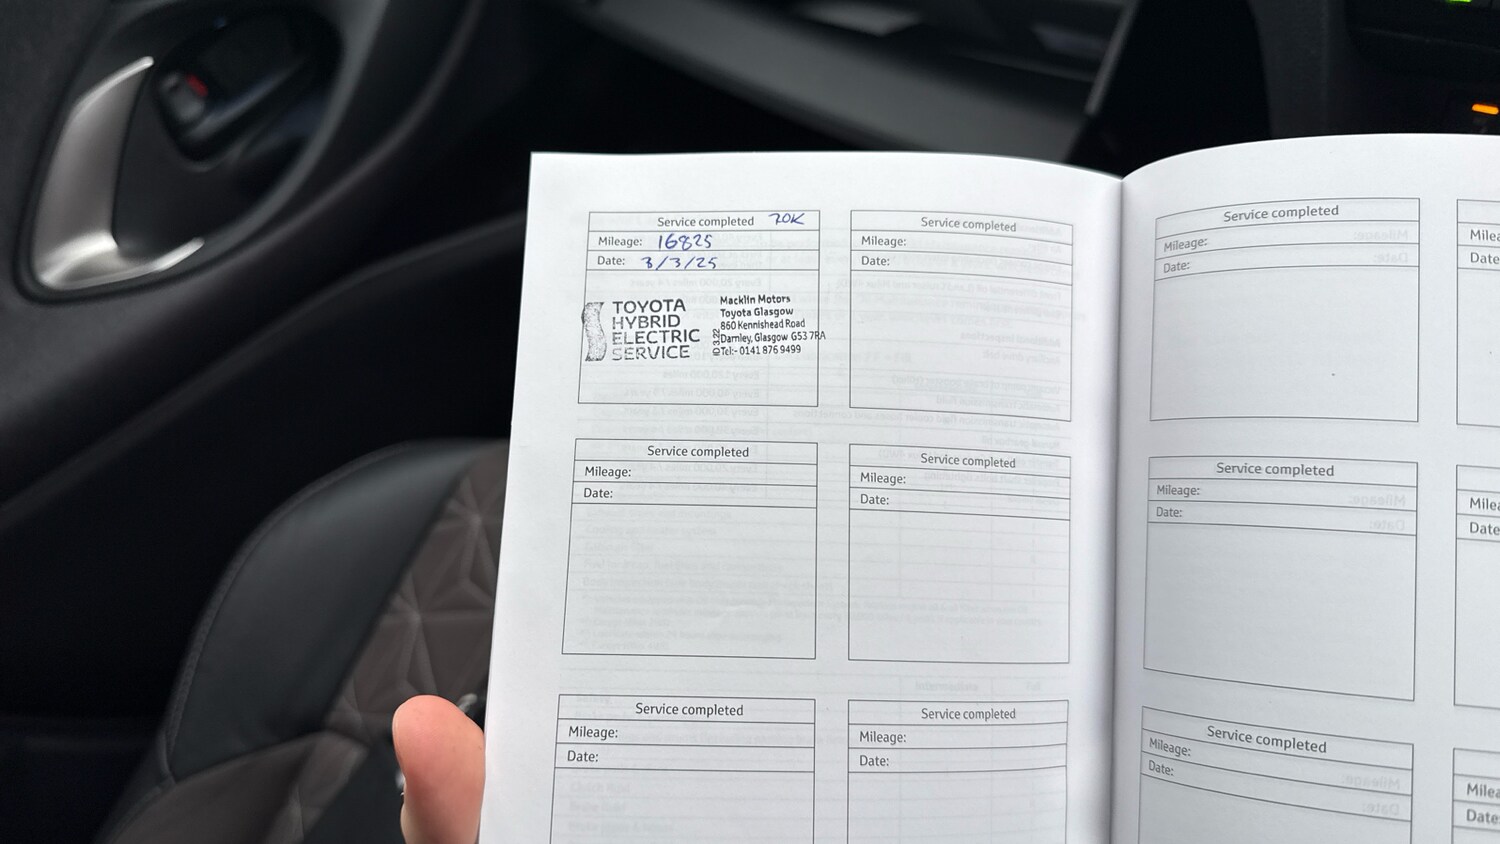 Service completed 20K
Mileage: 16825
Date: 3/3/25
TOYOTA
HYBRID
ELECTRIC
SERVICE
Macklin Motors
Toyota Glasgow
860 Kennishead Road
Darnley, Glasgow G53 7RA
Tel:- 0141 876 9499
Service completed
Mileage:
Date:
Service completed
Mileage:
Date:
Milea
Date
Service completed
Mileage:
Date:
Service completed
Mileage:
Date:
Service completed
Mileage:
Date:
Milea
Date
Service completed
Mileage:
Date:
Service completed
Mileage:
Date:
Service completed
Mileage:
Date:
Milea
Date